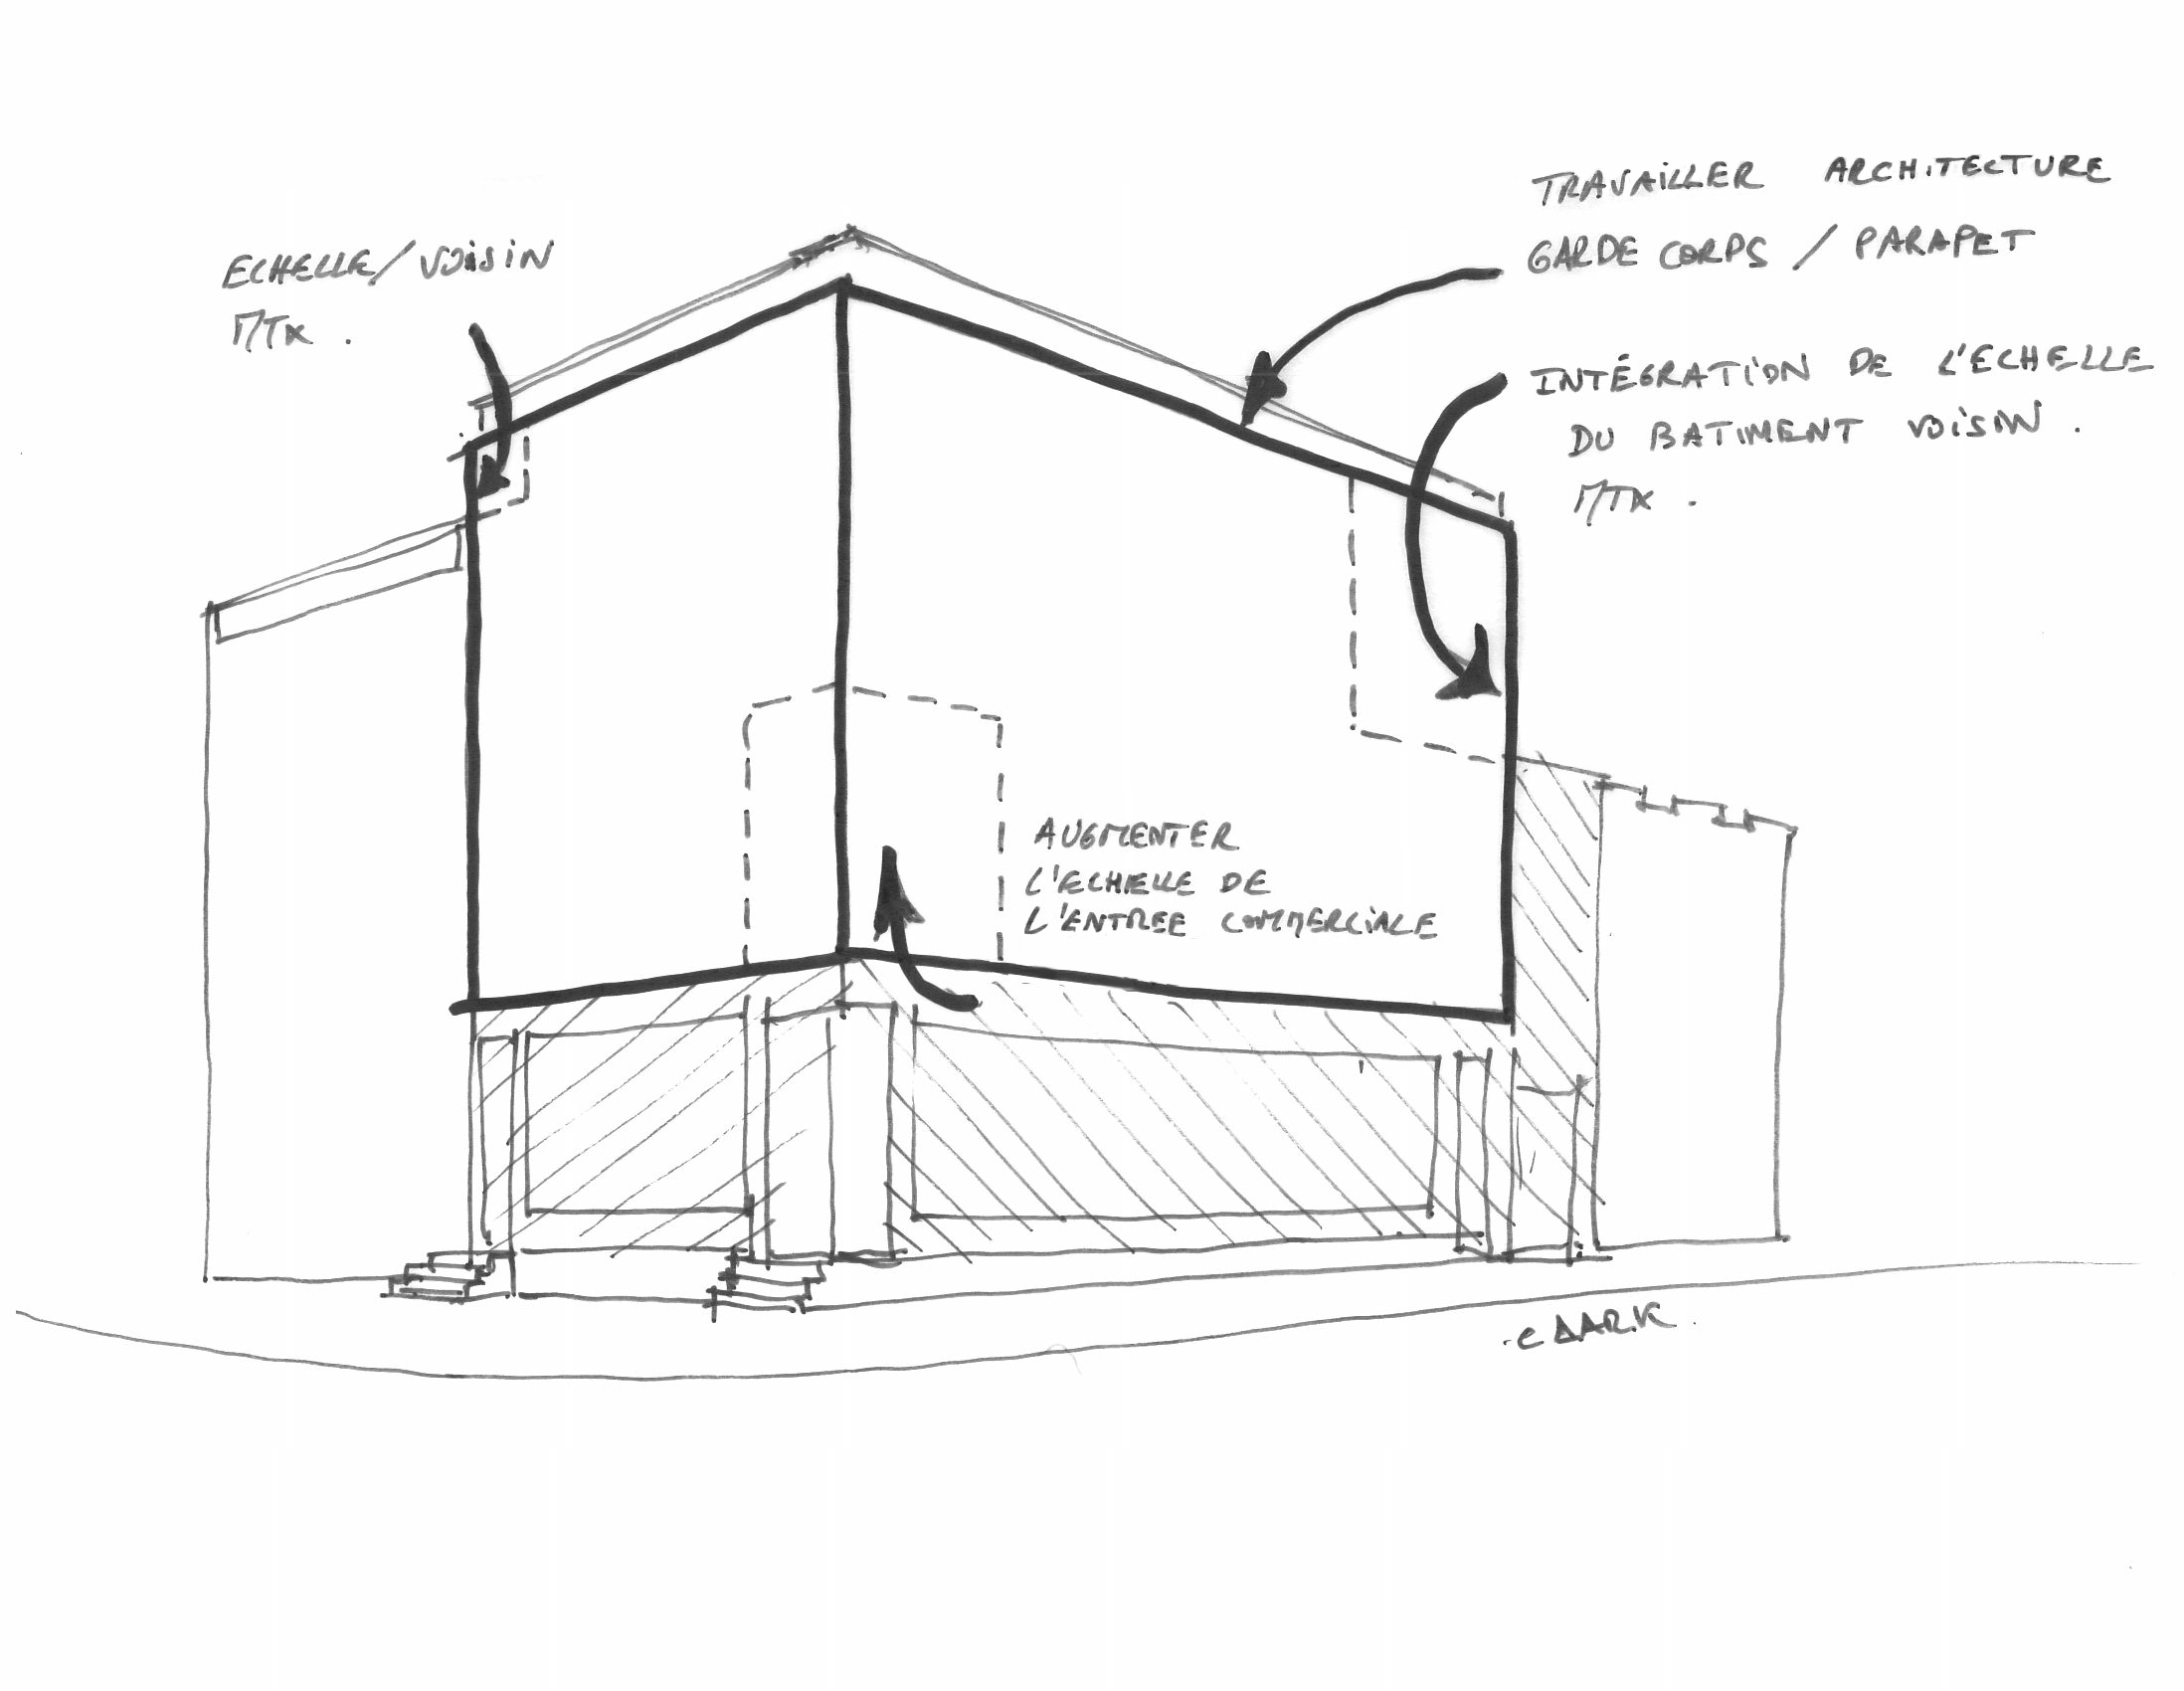 ECHELLE/VOISIN
MTX .
TRAVAILLER ARCHITECTURE
GARDE CORPS / PARAPET
INTÉGRATION DE L'ECHELLE
DU BATIMENT VOISIN .
MTX .
AUGMENTER
L'ECHELLE DE
L'ENTREE COMMERCIALE